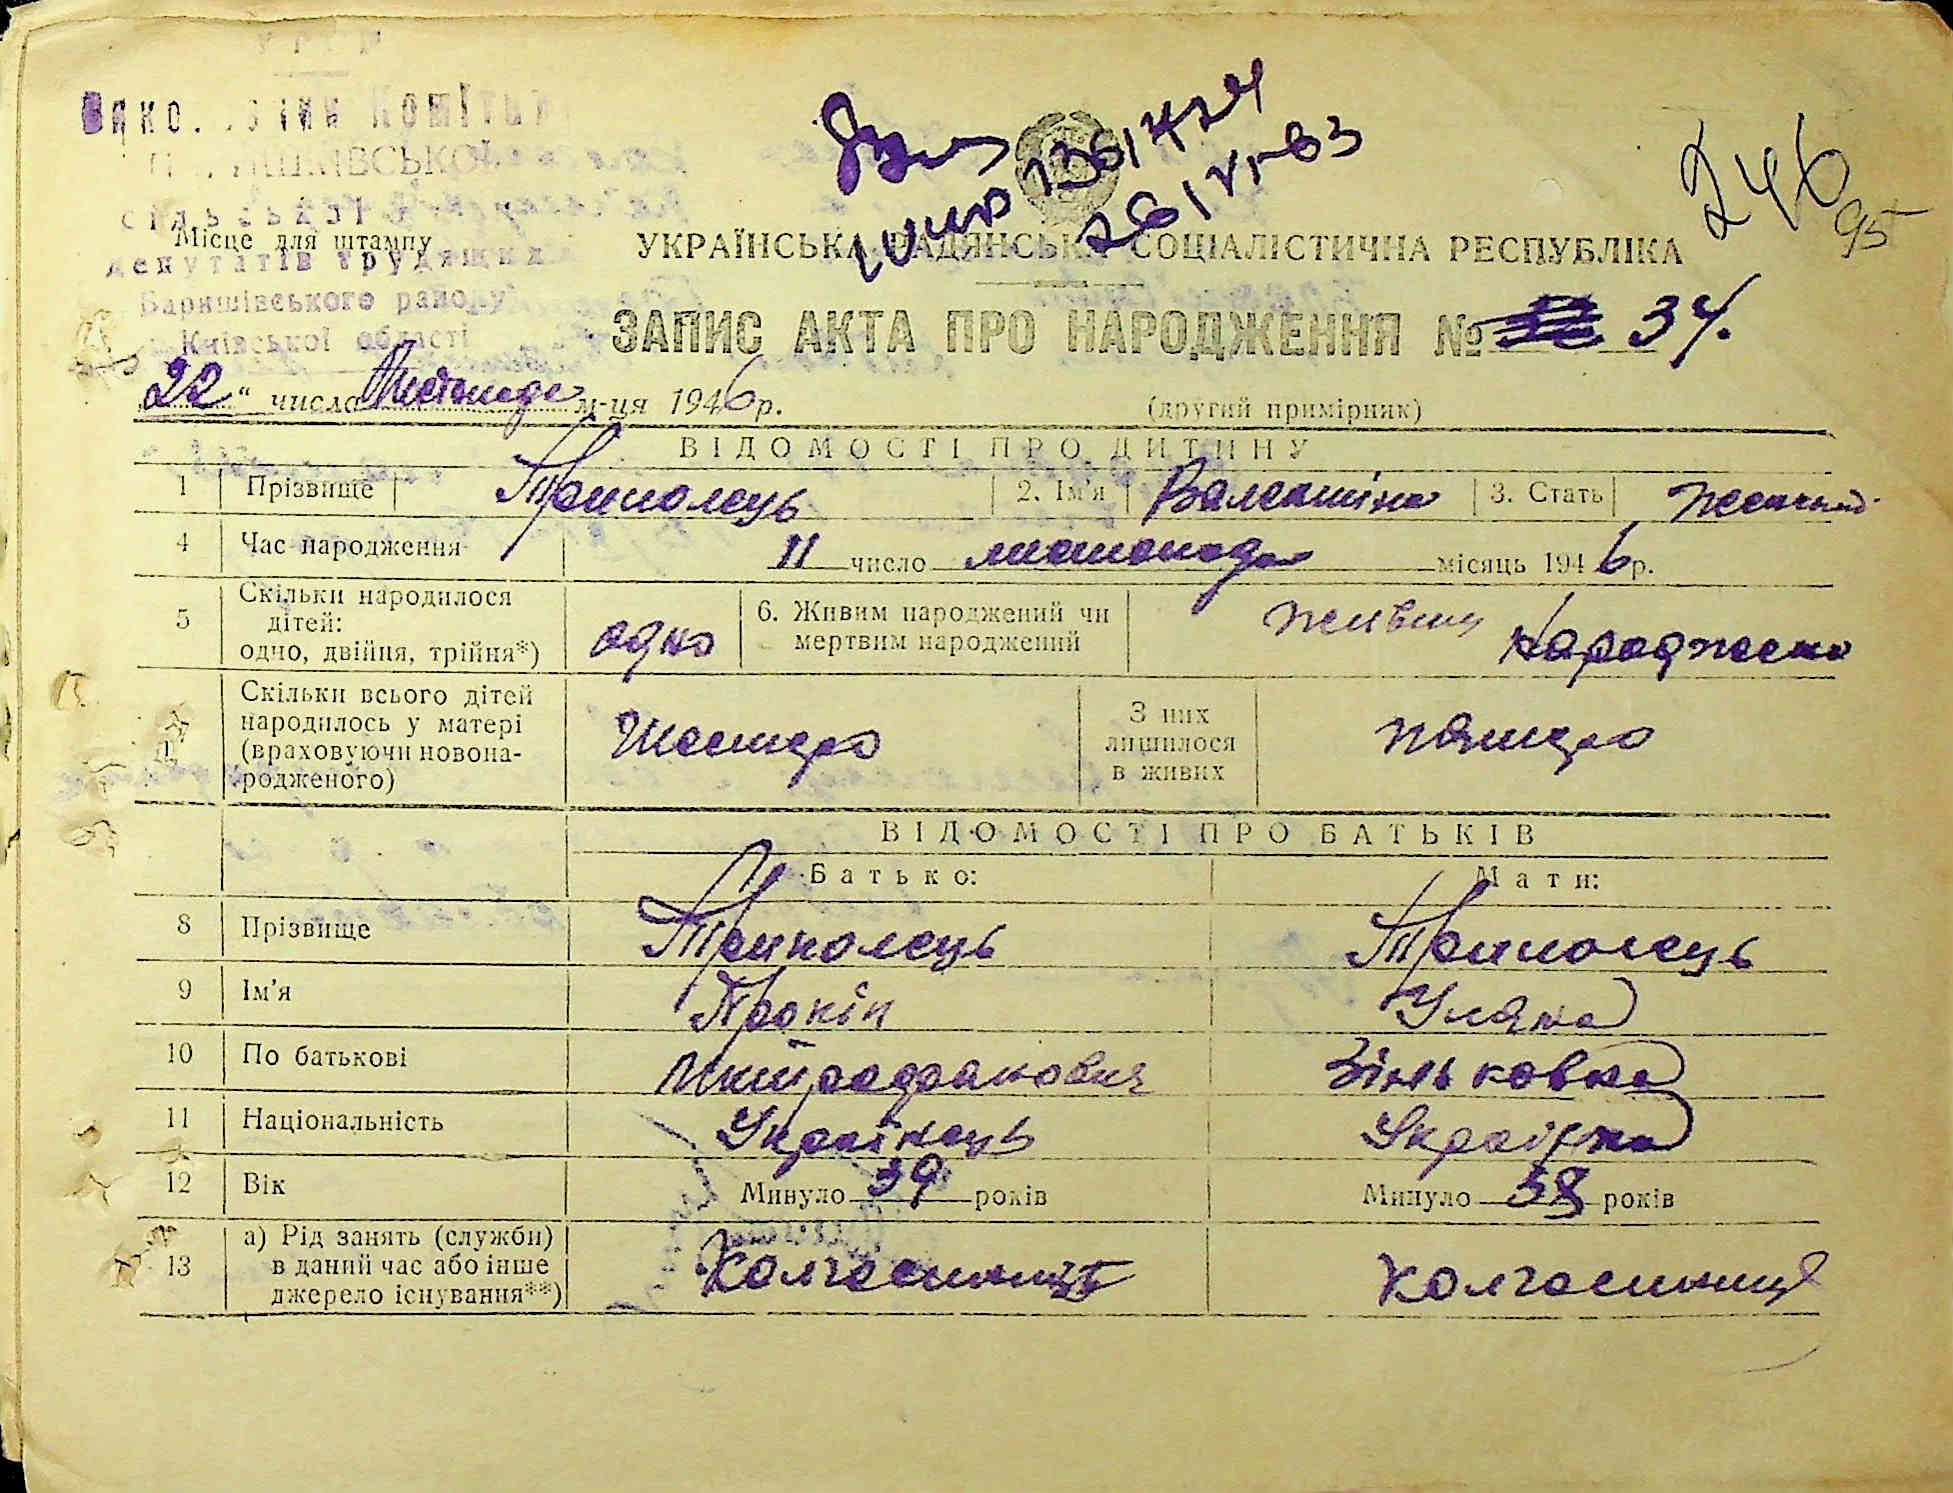 У Р С Р
комітет
сільської
Місце для штампу
депутатів трудящих
Баришівського району
Київської області
246
95
УКРАЇНСЬКА РАДЯНСЬКА СОЦІАЛІСТИЧНА РЕСПУБЛІКА
ЗАПИС АКТА ПРО НАРОДЖЕННЯ № 34.
„22“ числа Листопада м-ця 1946 р. (другий примірник)
ВІДОМОСТІ ПРО ДИТИНУ
1 Прізвище Триполець 2. Ім'я Валентіна 3. Стать
4 Час народження 11 число листопада місяць 1946 р.
5 Скільки народилося дітей: одно, двійня, трійня*) одно 6. Живим народжений чи мертвим народжений Живим народжено
Скільки всього дітей народилось у матері (враховуючи новонародженого) Шестеро З них лишилося в живих пятеро
ВІДОМОСТІ ПРО БАТЬКІВ
Батько: Мати:
8 Прізвище Триполець Триполець
9 Ім'я Прокіп Уляна
10 По батькові Зіньковна
11 Національність Українець Українка
12 Вік Минуло 39 років Минуло 38 років
13 а) Рід занять (служби) в даний час або інше джерело існування**) Колгоспник Колгоспниця